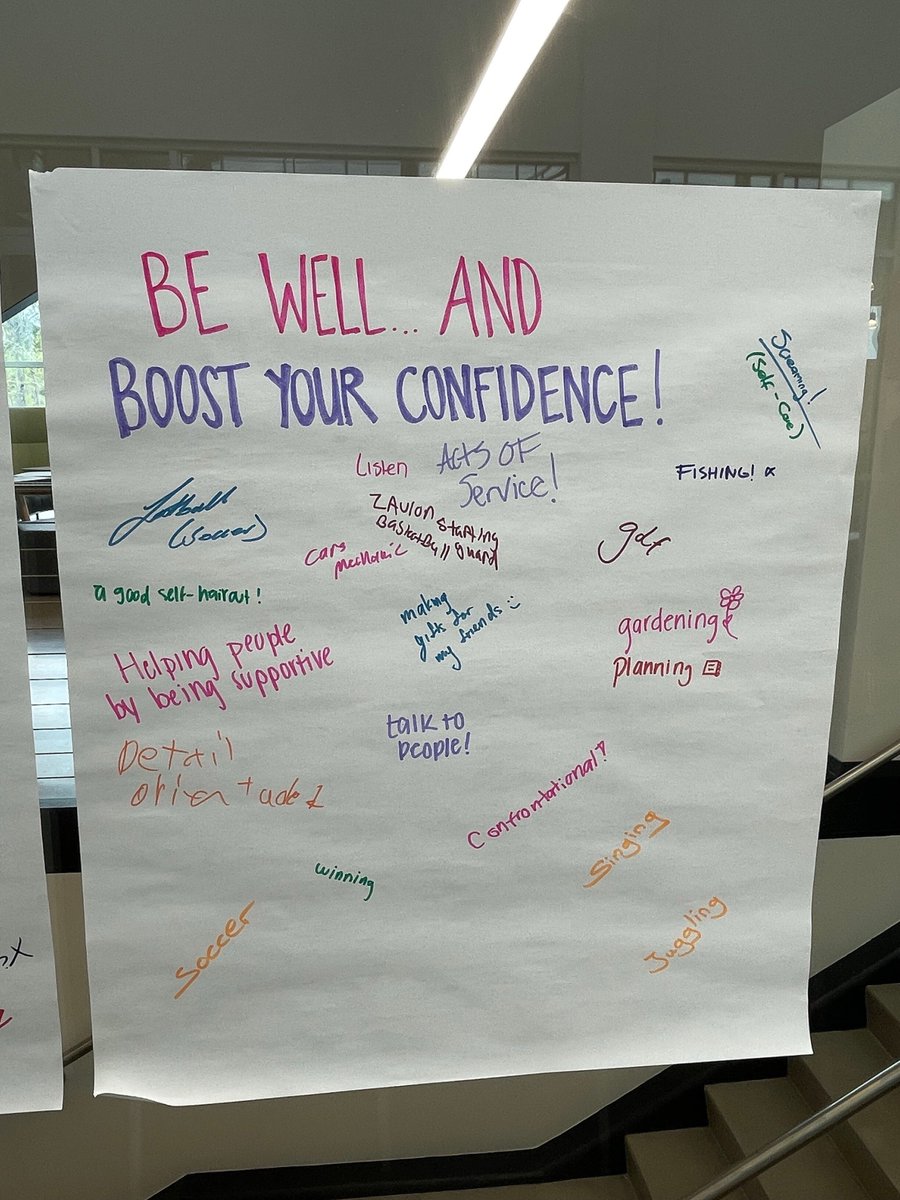 BE WELL... AND
BOOST YOUR CONFIDENCE!
Screaming!
(Self-Care)
Listen
Acts OF
Service!
FISHING!
Football
(Soccer)
ZAVION Starting
Basketball guard
cars
mechanic
a good self-haircut!
making
gifts for
my friends :)
gardening
Planning
Helping people
by being supportive
talk to
people!
Detail
Confrontational!
Singing
winning
Soccer
Juggling